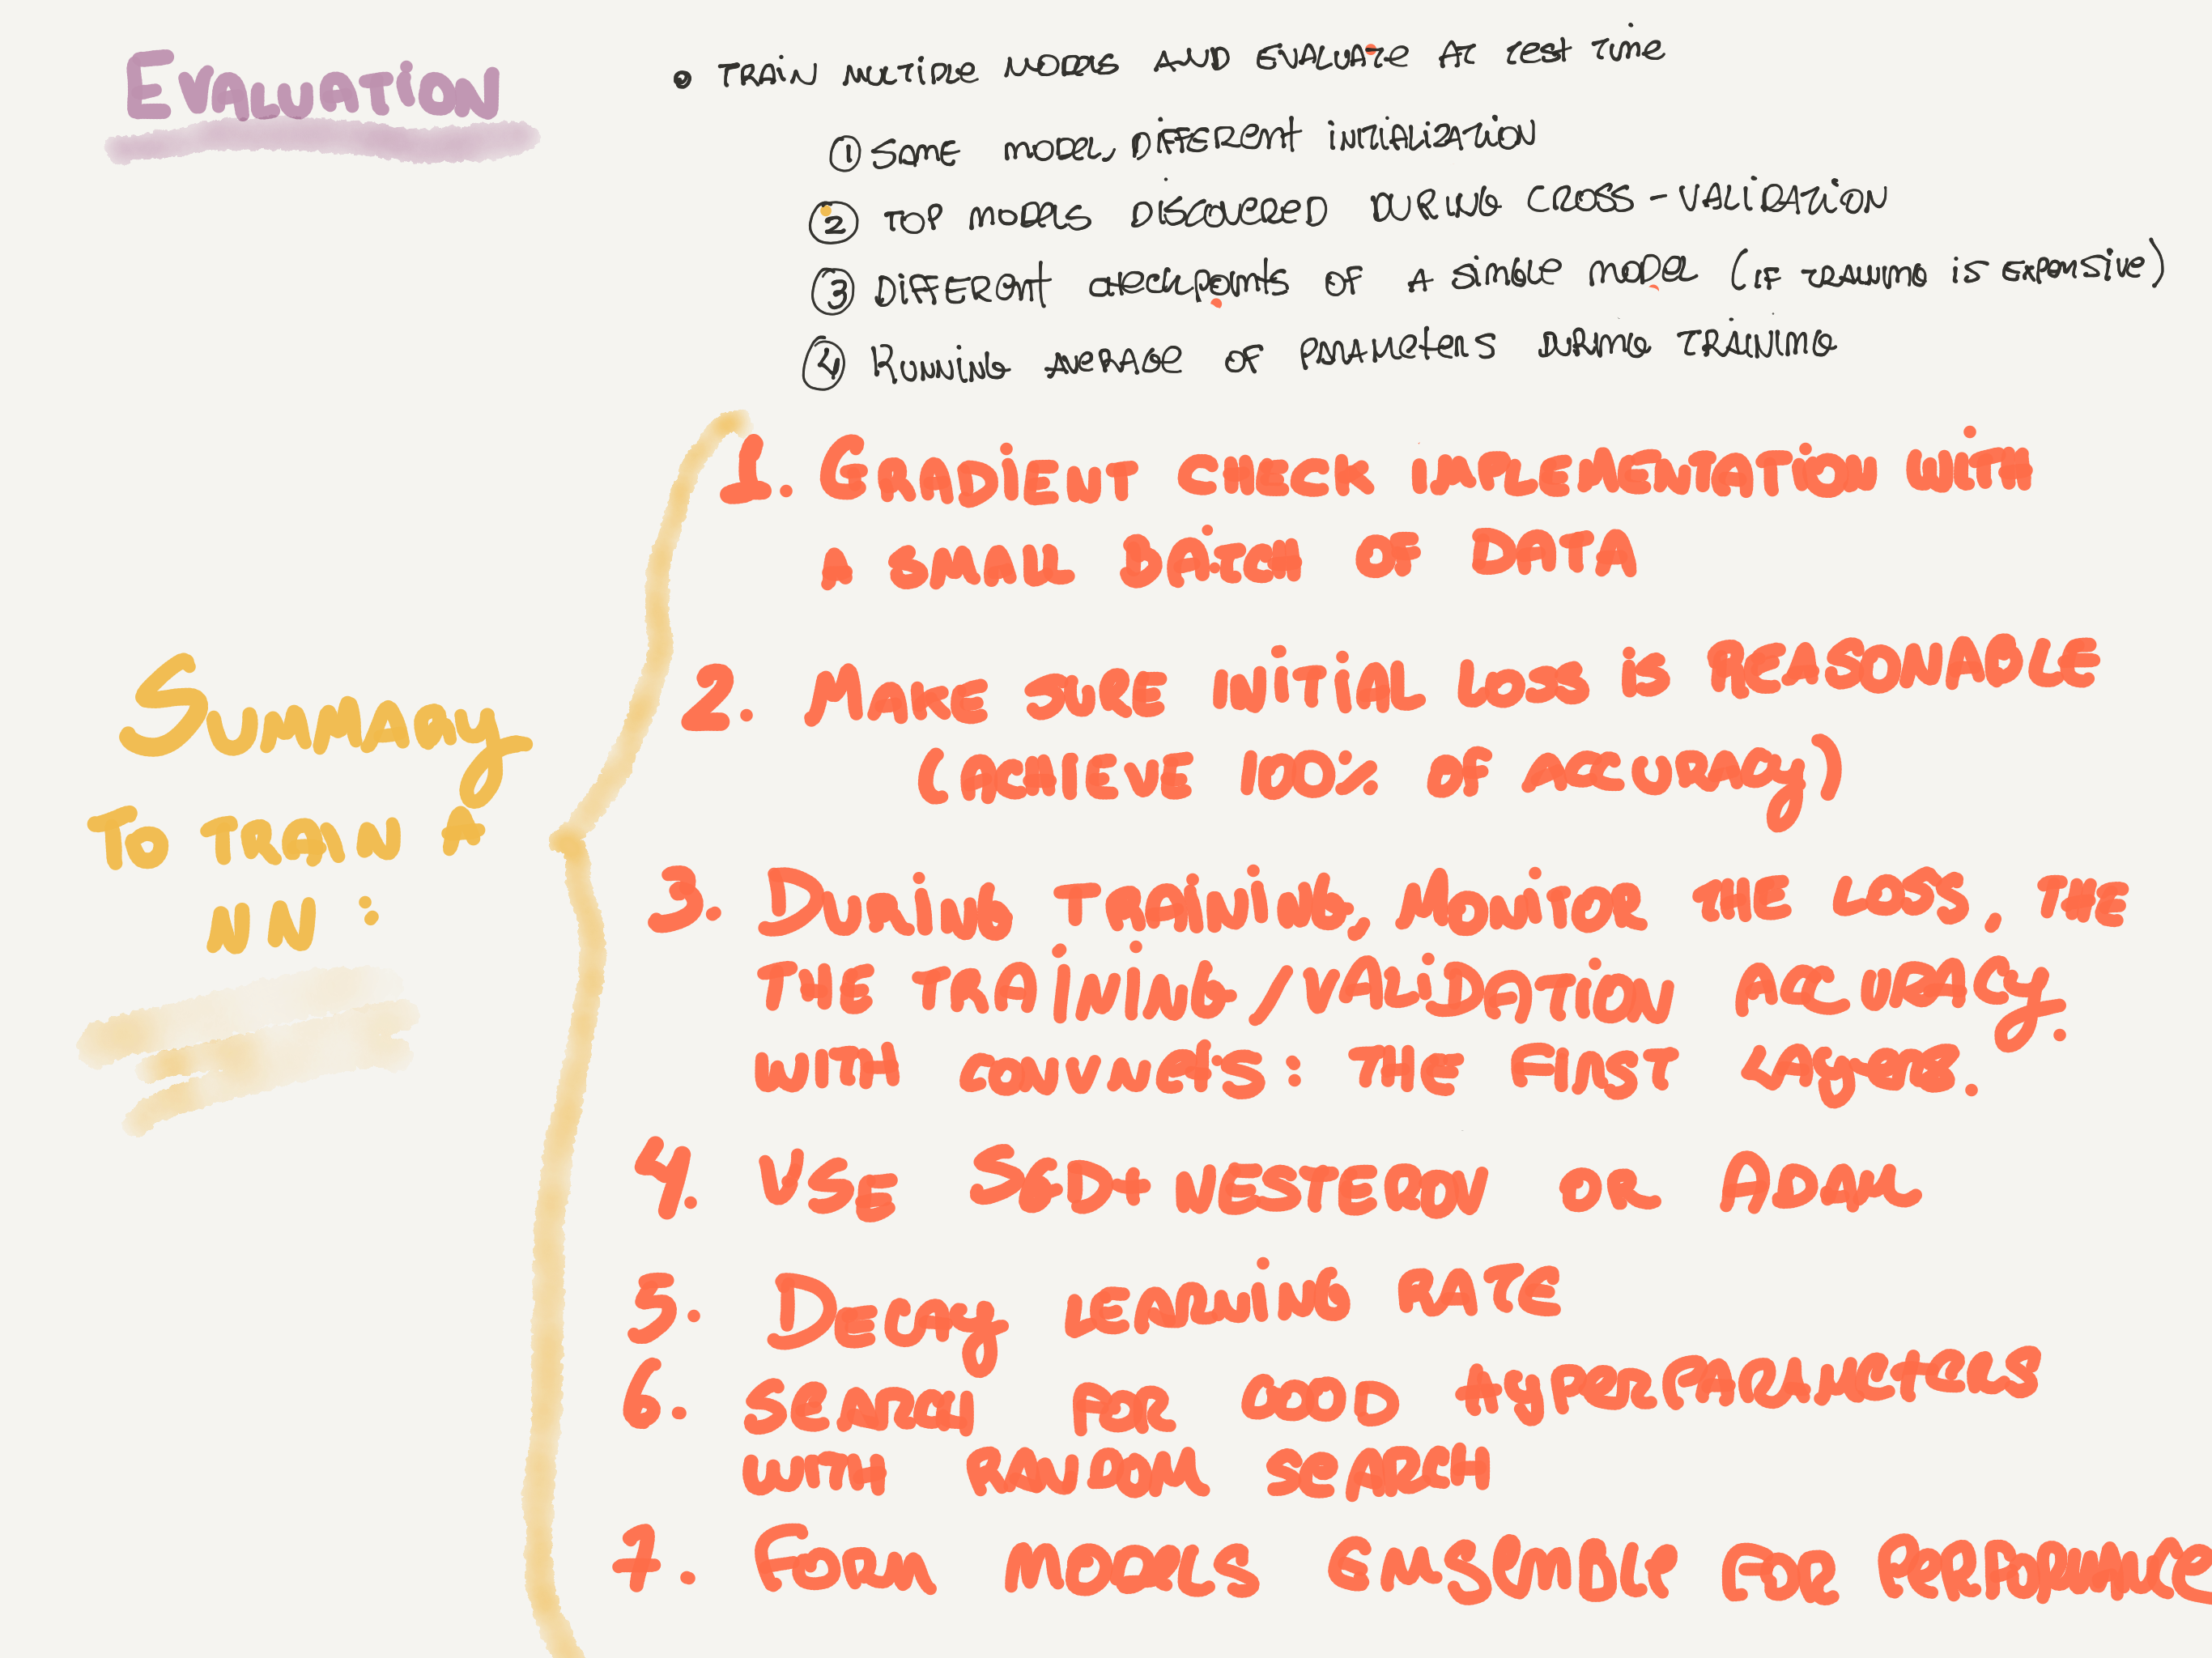 EVALUATION
• TRAIN MULTIPLE MODELS AND EVALUATE AT TEST TIME
① SAME MODEL, DIFFERENT INITIALIZATION
② TOP MODELS DISCOVERED DURING CROSS-VALIDATION
③ DIFFERENT CHECKPOINTS OF A SINGLE MODEL (IF TRAINING IS EXPENSIVE)
④ RUNNING AVERAGE OF PARAMETERS DURING TRAINING
SUMMARY
TO TRAIN A
NN :
1. GRADIENT CHECK IMPLEMENTATION WITH
A SMALL BATCH OF DATA
2. MAKE SURE INITIAL LOSS IS REASONABLE
(ACHIEVE 100% OF ACCURACY)
3. DURING TRAINING, MONITOR THE LOSS, THE
THE TRAINING/VALIDATION ACCURACY.
WITH CONVNETS : THE FIRST LAYERS.
4. USE SGD+ NESTEROV OR ADAM
5. DECAY LEARNING RATE
6. SEARCH FOR GOOD HYPERPARAMETERS
WITH RANDOM SEARCH
7. FORM MODELS ENSEMBLE FOR PERFORMANCE